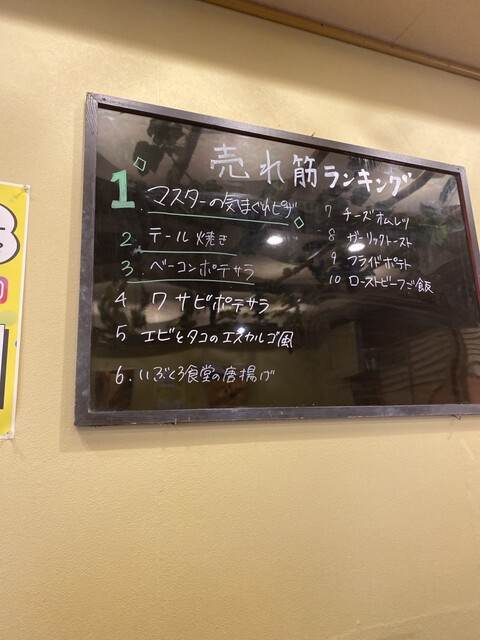 売れ筋ランキング
1. マスターの気まぐれピザ
2. テール焼き
3. ベーコンポテサラ
4 ワサビポテサラ
5 エビとタコのエスカルゴ風
6. いぶくろ食堂の唐揚げ
7 チーズオムレツ
8 ガーリックトースト
9 フライドポテト
10 ローストビーフご飯